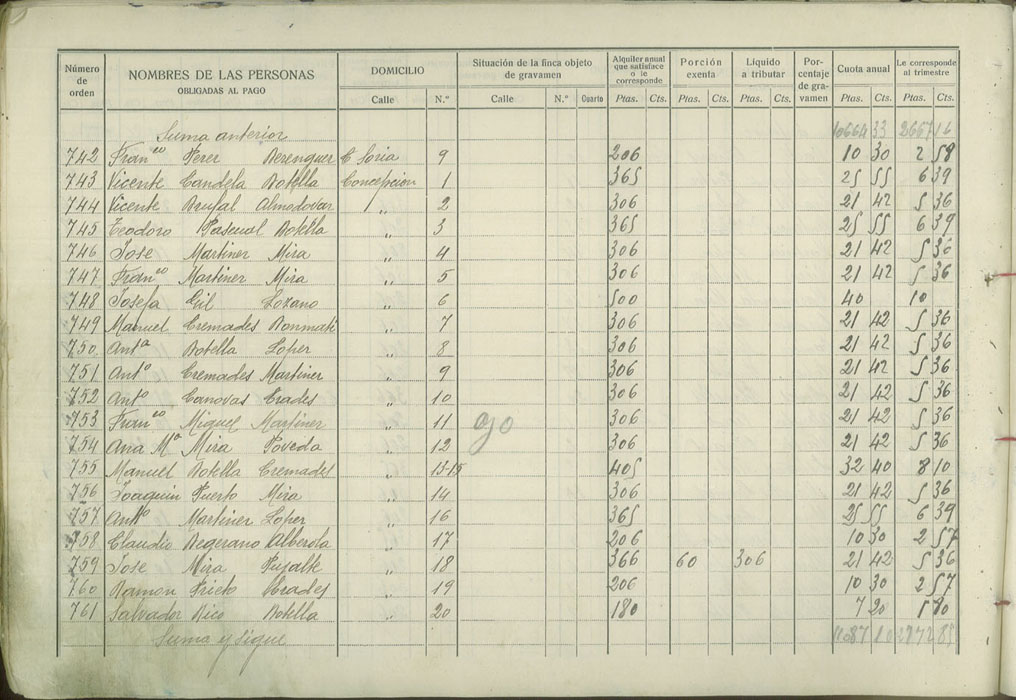 Número de orden | NOMBRES DE LAS PERSONAS OBLIGADAS AL PAGO | DOMICILIO | Situación de la finca objeto de gravamen | Alquiler anual que satisface o le corresponde | Porción exenta | Líquido a tributar | Porcentaje de gravamen | Cuota anual | Le corresponde al trimestre
Calle | N.º | Calle | N.º | Cuarto | Ptas. | Cts. | Ptas. | Cts. | Ptas. | Cts. | Ptas. | Cts. | Ptas. | Cts.
Suma anterior 10664 33 2667 16
742 Franco Perez Berenguer C Soria 9 206 10 30 2 58
743 Vicente Candela Botella Concepcion 1 365 25 55 6 39
744 Vicente Brufal Almodovar / „ 2 306 21 42 5 36
745 Teodoro Pascual Botella „ 3 365 25 55 6 39
746 Jose Martinez Mira „ 4 306 21 42 5 36
747 Franco Martinez Mira „ 5 306 21 42 5 36
748 Josefa Gil Lozano „ 6 500 40 10
749 Manuel Cremades Bonmati „ 7 306 21 42 5 36
750 Anta Botella Lopez „ 8 306 21 42 5 36
751 Anto Cremades Martinez „ 9 306 21 42 5 36
752 Anto Canovas Crades „ 10 306 21 42 5 36
753 Franco Miguel Martinez „ 11 ojo 306 21 42 5 36
754 Ana Ma Mira Poveda „ 12 306 21 42 5 36
755 Manuel Botella Cremades „ 13-15 405 32 40 8 10
756 Joaquin Puerto Mira „ 14 306 21 42 5 36
757 Anto Martinez Lopez „ 16 365 25 55 6 39
758 Claudio Begerano Alberola „ 17 206 10 30 2 57
759 Jose Mira Pujalte „ 18 366 60 306 21 42 5 36
760 Ramon Prieto Crades „ 19 206 10 30 2 57
761 Salvador Rico Botella „ 20 180 7 20 1 80
Suma y Sigue